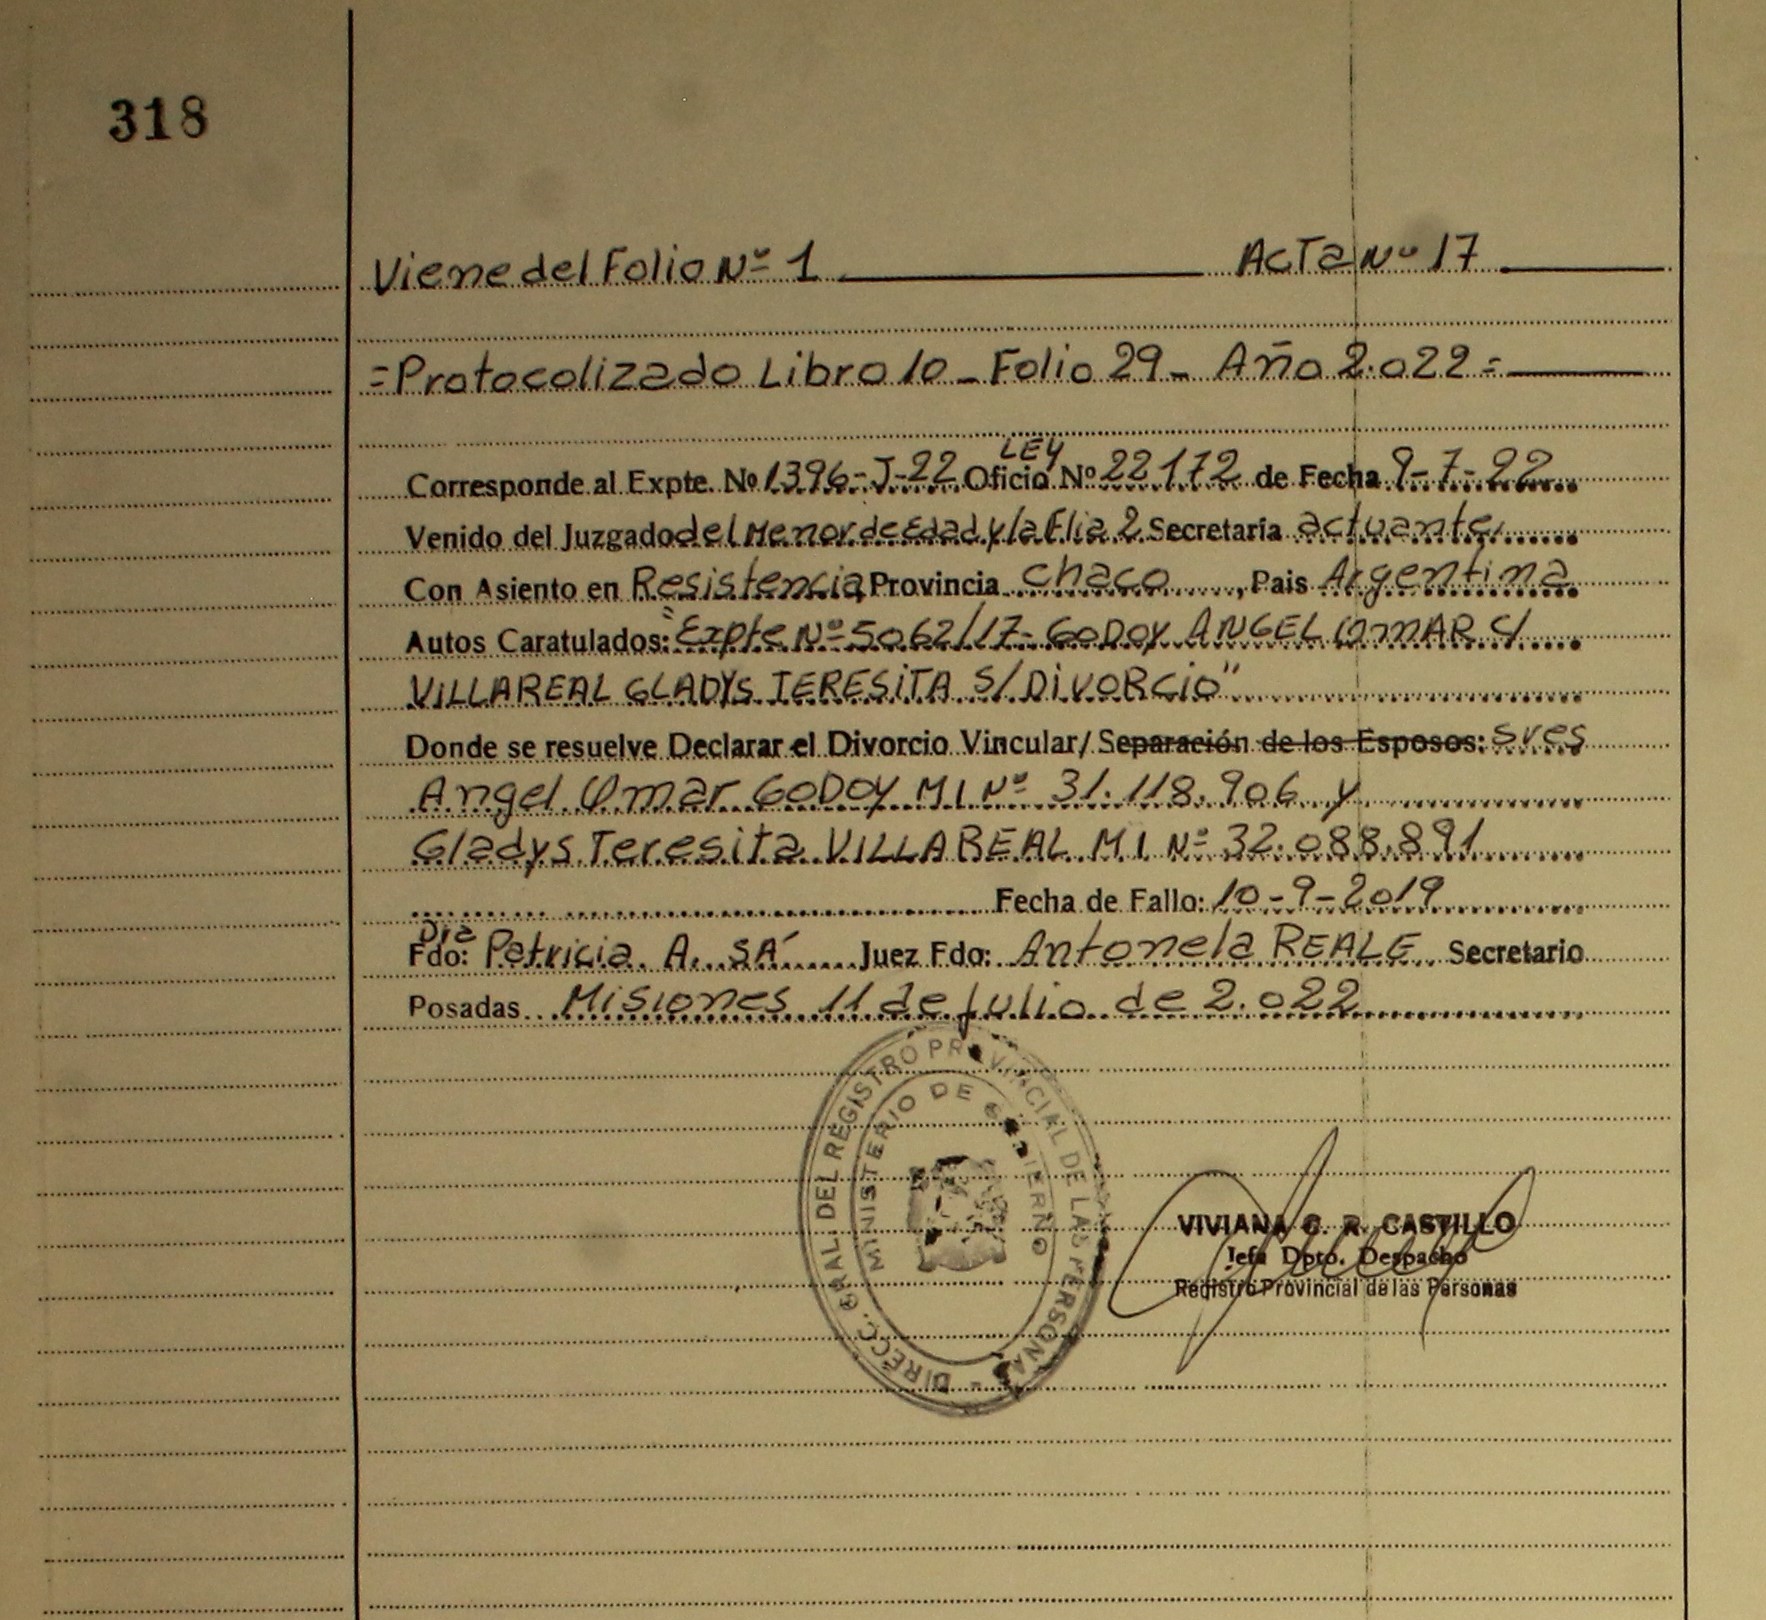 318
Viene del Folio Nº 1 ACTa Nº 17
=Protocolizado Libro 10 - Folio 29 - Año 2.022=
LEY
Corresponde al Expte. Nº 1396-J-22 Oficio Nº 22172 de Fecha 9-7-22
Venido del Juzgado del Menor de Edad y la Flia 2 Secretaria actuante,
Con Asiento en Resistencia Provincia Chaco, Pais Argentina
Autos Caratulados: "Expte Nº 5062/17- GODOY ANGEL OMAR C/
VILLAREAL GLADYS TERESITA S/DIVORCIO"
Donde se resuelve Declarar el Divorcio Vincular/ Separación de los Esposos: Sres
Angel Omar GODOY M I Nº 31.118.906 y
Gladys Teresita VILLAREAL M I Nº 32.088.891
Fecha de Fallo: 10-9-2019
Dra
Fdo: Patricia A. SÁ Juez Fdo: Antonela REALE Secretario
Posadas Misiones 11 de Julio de 2.022
DIRECC. GRAL. DEL REGISTRO PROVINCIAL DE LAS PERSONAS -
MINISTERIO DE GOBIERNO
VIVIANA G. R. CASTILLO
Jefa Dpto. Despacho
Registro Provincial de las Personas